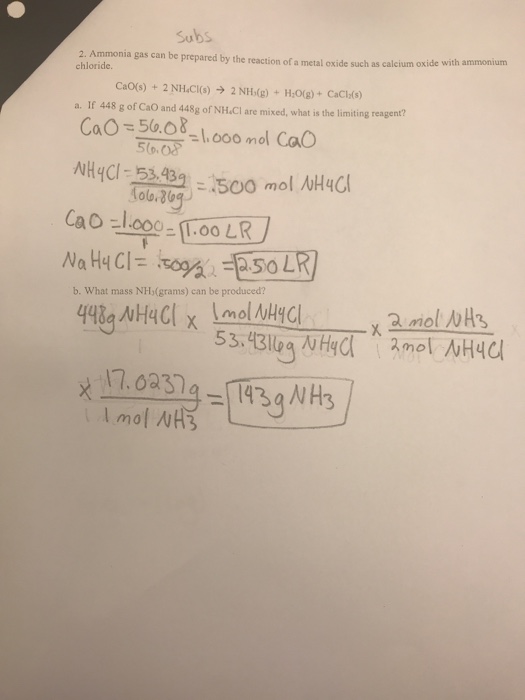 Subs
2. Ammonia gas can be prepared by the reaction of a metal oxide such as calcium oxide with ammonium
chloride.
CaO(s) + 2 NH₄Cl(s) → 2 NH₃(g) + H₂O(g) + CaCl₂(s)
a. If 448 g of CaO and 448g of NH₄Cl are mixed, what is the limiting reagent?
CaO = 56.08 / 56.08 = 1.000 mol CaO
NH4Cl - 53.439 / 106.86g = .500 mol NH4Cl
CaO = 1.000 / 1 = 1.00 LR
NaH4Cl = .500/2 = 2.50 LR
b. What mass NH₃(grams) can be produced?
448g NH4Cl x 1 mol NH4Cl / 53.43116g NH4Cl x 2 mol NH3 / 2 mol NH4Cl
x 17.0237g / 1 mol NH3 = 143g NH3